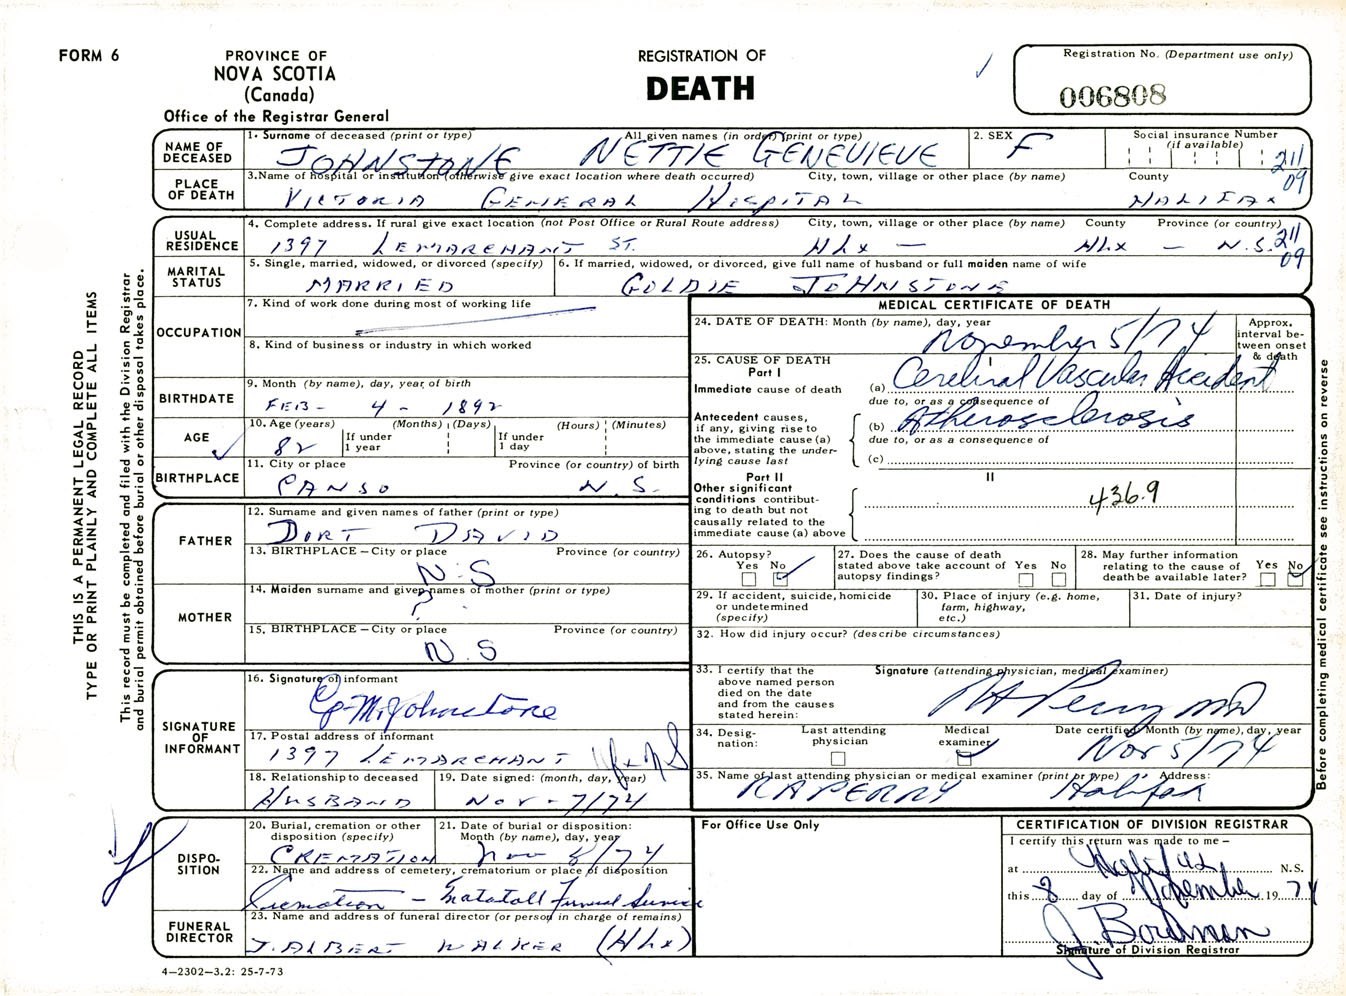 FORM 6
PROVINCE OF
NOVA SCOTIA
(Canada)
Office of the Registrar General
REGISTRATION OF
DEATH
Registration No. (Department use only)
006808
NAME OF DECEASED
1. Surname of deceased (print or type) All given names (in order) (print or type)
JOHNSTONE NETTIE GENEVIEVE
2. SEX
F
Social insurance Number (if available)
211
09
PLACE OF DEATH
3. Name of hospital or institution (otherwise give exact location where death occurred) City, town, village or other place (by name) County
VICTORIA GENERAL HOSPITAL HALIFAX
USUAL RESIDENCE
4. Complete address. If rural give exact location (not Post Office or Rural Route address) City, town, village or other place (by name) County Province (or country)
1397 LEMARCHANT ST. HLx — HLx — N.S.
211
09
MARITAL STATUS
5. Single, married, widowed, or divorced (specify)
MARRIED
6. If married, widowed, or divorced, give full name of husband or full maiden name of wife
GOLDIE JOHNSTONE
OCCUPATION
7. Kind of work done during most of working life
8. Kind of business or industry in which worked
BIRTHDATE
9. Month (by name), day, year of birth
FEB - 4 - 1892
AGE
10. Age (years) (Months) (Days) (Hours) (Minutes)
82
If under 1 year
If under 1 day
BIRTHPLACE
11. City or place Province (or country) of birth
CANSO N.S.
FATHER
12. Surname and given names of father (print or type)
DORT DAVID
13. BIRTHPLACE — City or place Province (or country)
N.S
MOTHER
14. Maiden surname and given names of mother (print or type)
?
15. BIRTHPLACE — City or place Province (or country)
N.S
SIGNATURE OF INFORMANT
16. Signature of informant
G. M. Johnstone
17. Postal address of informant
1397 LEMARCHANT Hfx NS
18. Relationship to deceased
HUSBAND
19. Date signed: (month, day, year)
NOV - 7/74
DISPO-
SITION
20. Burial, cremation or other disposition (specify)
CREMATION
21. Date of burial or disposition: Month (by name), day, year
Nov 8/74
22. Name and address of cemetery, crematorium or place of disposition
Cremation — Mattatall Funeral Service
FUNERAL DIRECTOR
23. Name and address of funeral director (or person in charge of remains)
J. ALBERT WALKER (Hlx)
4—2302—3.2: 25-7-73
MEDICAL CERTIFICATE OF DEATH
24. DATE OF DEATH: Month (by name), day, year
November 5/74
Approx. interval be-
tween onset & death
25. CAUSE OF DEATH
Part I
I
Immediate cause of death
(a) Cerebral Vascular Accident
due to, or as a consequence of
Antecedent causes,
if any, giving rise to
the immediate cause (a)
above, stating the under-
lying cause last
(b) Atherosclerosis
due to, or as a consequence of
(c)
Part II
II
Other significant
conditions contribut-
ing to death but not
causally related to the
immediate cause (a) above
436.9
26. Autopsy?
Yes No
27. Does the cause of death
stated above take account of
autopsy findings?
Yes No
28. May further information
relating to the cause of
death be available later?
Yes No
29. If accident, suicide, homicide
or undetermined
(specify)
30. Place of injury (e.g. home,
farm, highway,
etc.)
31. Date of injury?
32. How did injury occur? (describe circumstances)
33. I certify that the
above named person
died on the date
and from the causes
stated herein:
Signature (attending physician, medical examiner)
RA Perry MD
34. Desig-
nation:
Last attending physician
Medical examiner
Date certified: Month (by name), day, year
Nov 5/74
35. Name of last attending physician or medical examiner (print or type) Address:
RA PERRY Halifax
For Office Use Only
CERTIFICATION OF DIVISION REGISTRAR
I certify this return was made to me —
at Halifax N.S.
this 8 day of November 1974
J. Boardman
Signature of Division Registrar
THIS IS A PERMANENT LEGAL RECORD
TYPE OR PRINT PLAINLY AND COMPLETE ALL ITEMS
This record must be completed and filed with the Division Registrar
and burial permit obtained before burial or other disposal takes place.
Before completing medical certificate see instructions on reverse